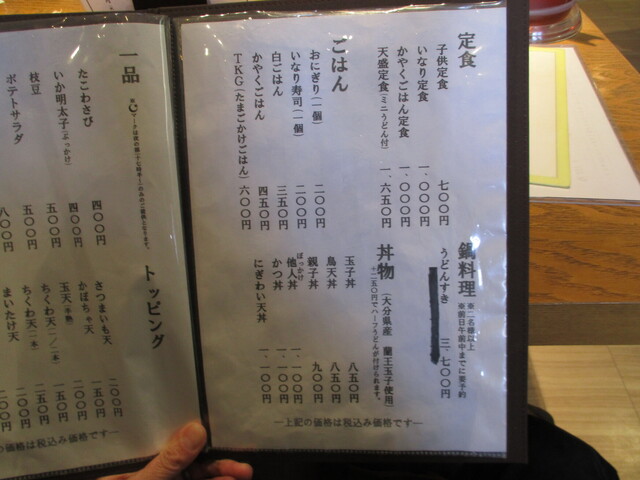 定食
子供定食 七〇〇円
いなり定食 一、〇〇〇円
かやくごはん定食 一、〇〇〇円
天盛定食(ミニうどん付) 一、六五〇円
ごはん
おにぎり(一個) 二〇〇円
いなり寿司(一個) 二〇〇円
白ごはん 三五〇円
かやくごはん 四五〇円
TKG(たまごかけごはん) 六〇〇円
鍋料理
※二名様以上
※前日午前中までに要予約
うどんすき 三、七〇〇円
丼物
(大分県産 蘭王玉子使用)
+二五〇円でハーフうどんが付けられます。
玉子丼 八五〇円
鳥天丼 八五〇円
親子丼 九〇〇円
他人丼 一、一〇〇円
かつ丼 一、一〇〇円
にぎわい天丼 一、一〇〇円
―上記の価格は税込み価格です―
一品
たこわさび 四〇〇円
いか明太子(ぶっかけ) 四〇〇円
枝豆 五〇〇円
ポテトサラダ 五〇〇円
八〇〇円
トッピング
さつまいも天 二〇〇円
かぼちゃ天 一五〇円
玉天(半熟) 一五〇円
ちくわ天(一/二本) 一五〇円
ちくわ天(一本) 二五〇円
まいたけ天 二〇〇円
の価格は税込み価格です―